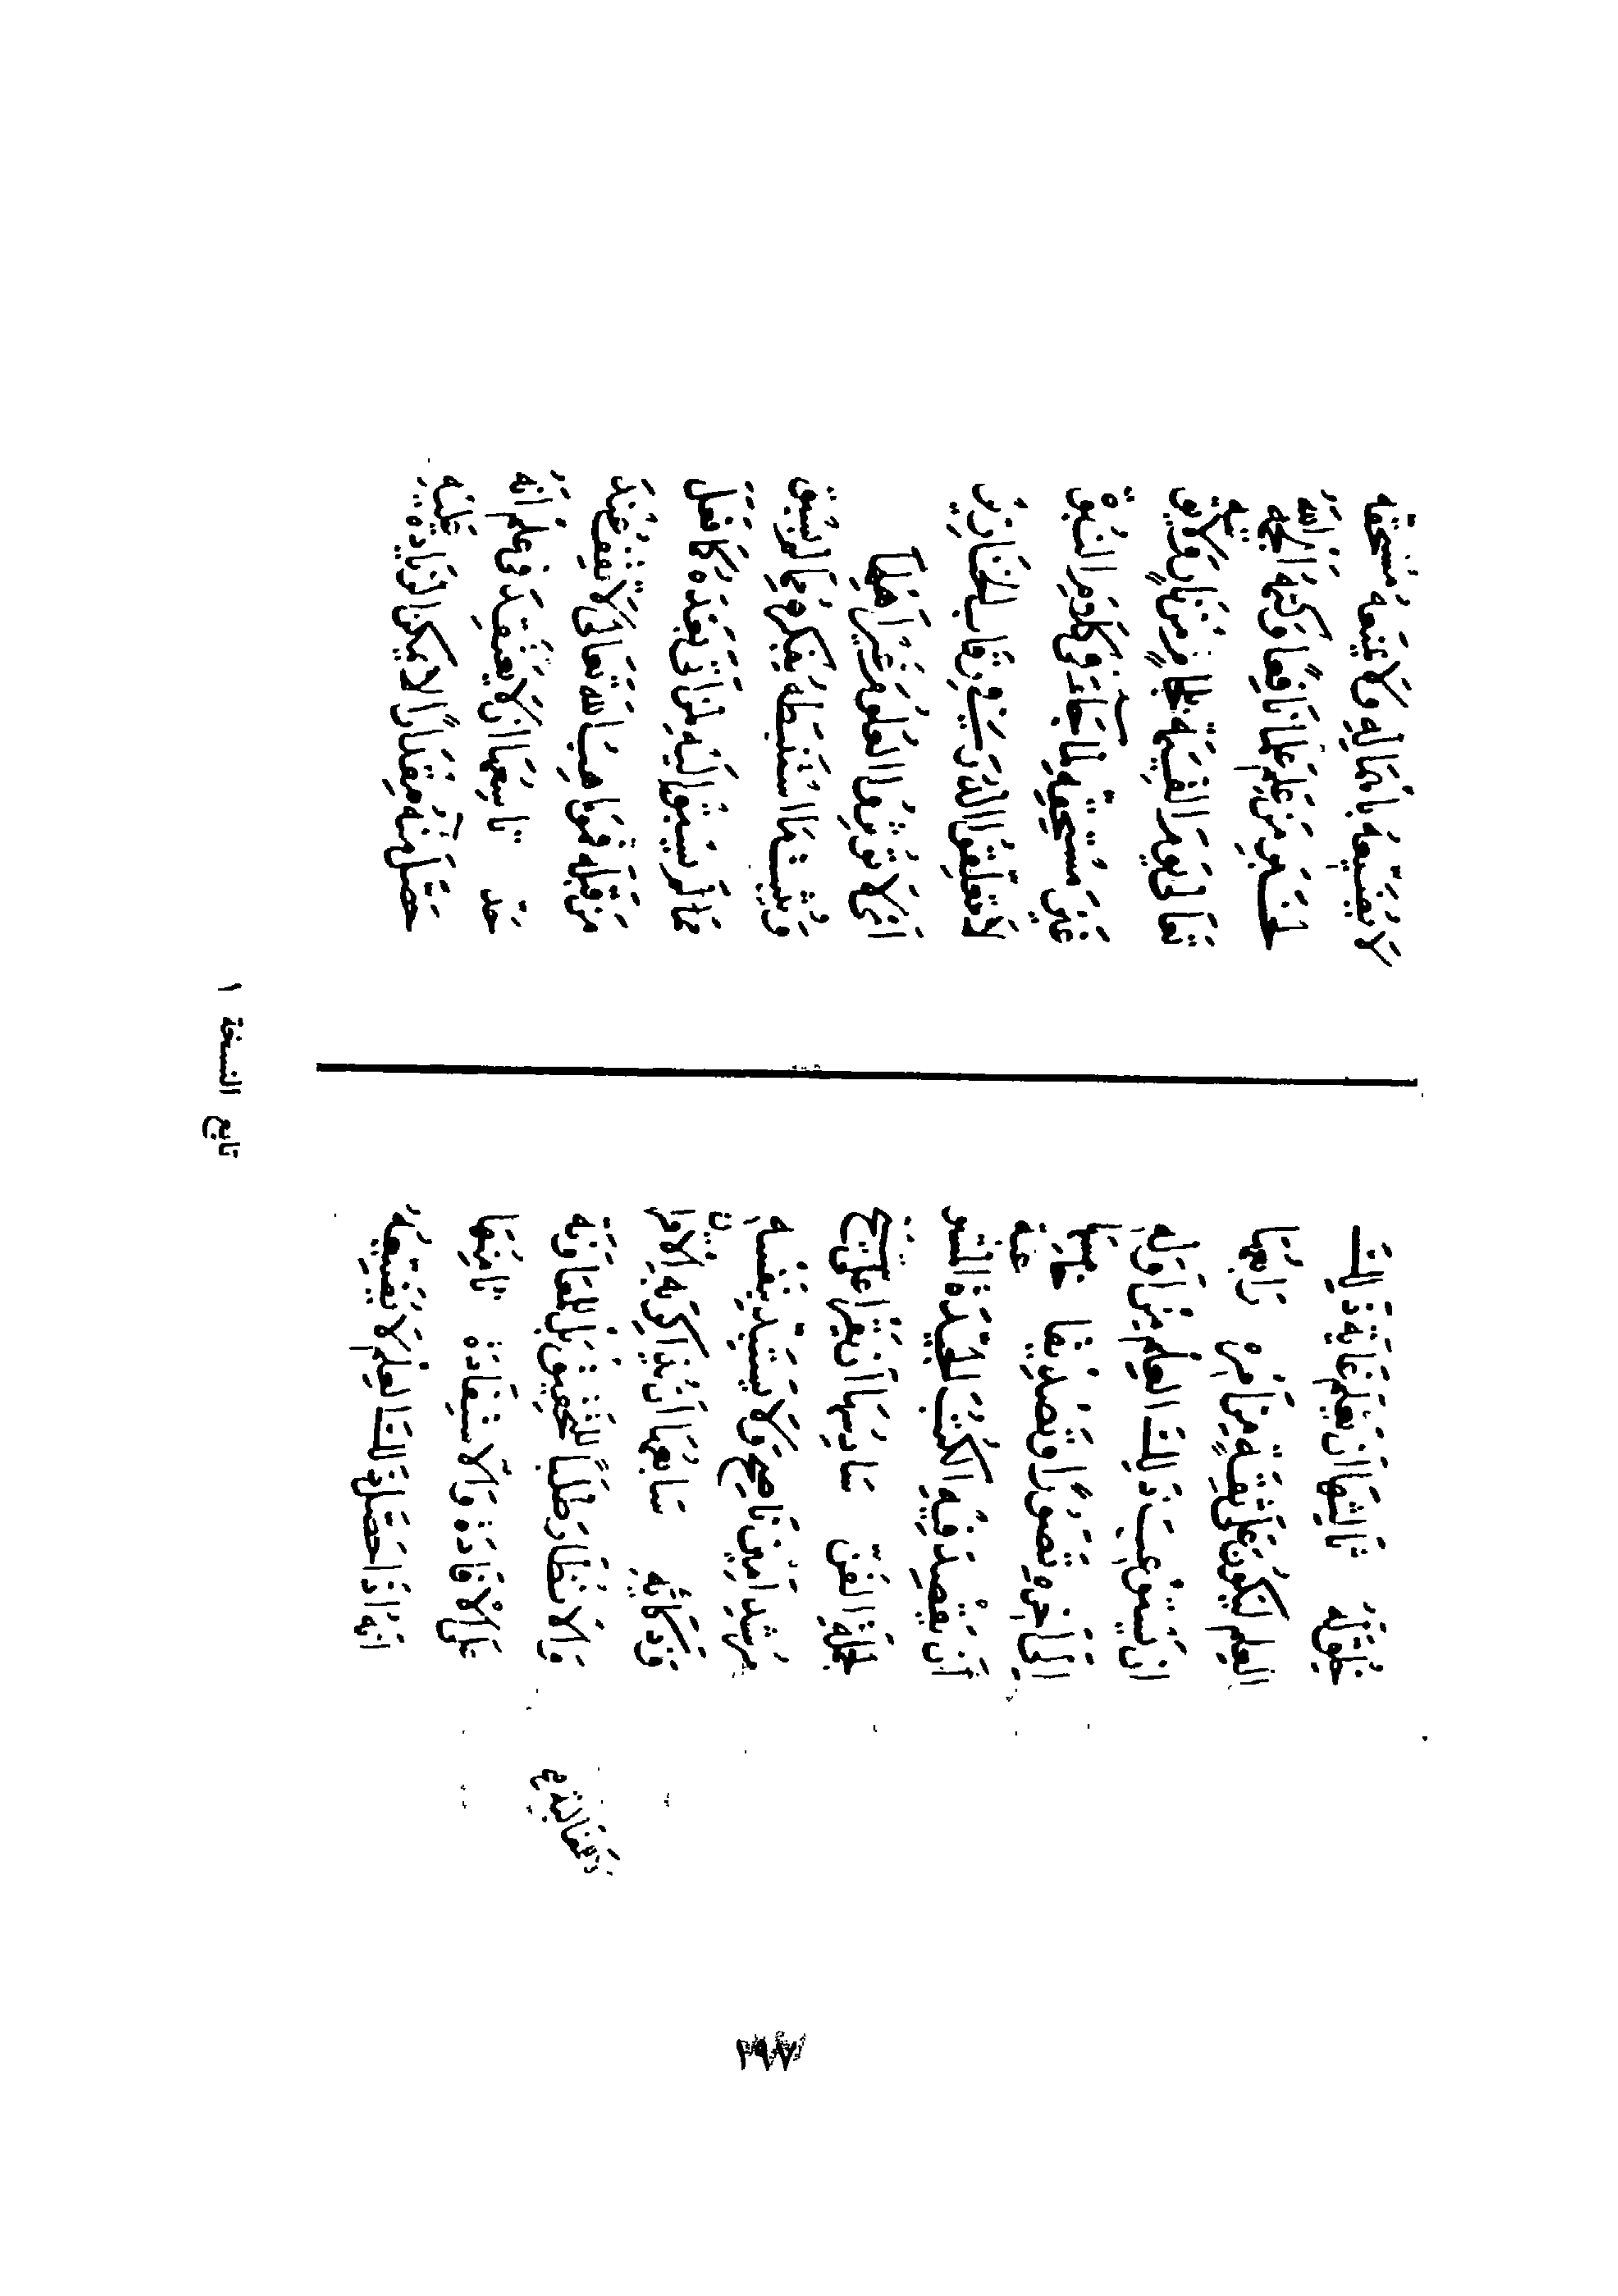 ثالثها ان يعلم غاية ذلك
العلم ليكون على ثقة من امره رابعها
ان يستوعب ذلك العلم من اوله
الى اخره تصورا وتصديقا خامسها
ان يقصد فيه الكتب الجيدة
لجملة الفن سادسها ان يقرا على شيخ
مرشد امين ناصح ولا يستبد بنفسه
وذكائه سابعها ان يذاكر به الاقران
والانظار طلبا للتحقيق بل للمعاونة
على الافادة والاستفادة ثامنها
انه اذا حصل ذلك العلم لا يضيعه
لا يضيعه باهماله ولا يمنعه مستحقه
لخبر من علم علما نافعا وكتمه الجمه الله
تعالى يوم القيمة بلجام من نار ولا يؤتيه
غير مستحقه لما جاء في كلام النبوة
لا تعلقوا الدرر في رقاب الخنازير
اي لا تؤتوا العلوم غير اهلها
ويثبت ما استنبطه بفكره مما لم يسبق
اليه لمن اتى بعده كما فعل
من قبله فمواهب الله تعالى لا تقف عند
حد تاسعها ان لا يعتقد في علم انه
حصل منه مقدارا لا يمكن الزيادة عليه
تابع النسخة ١